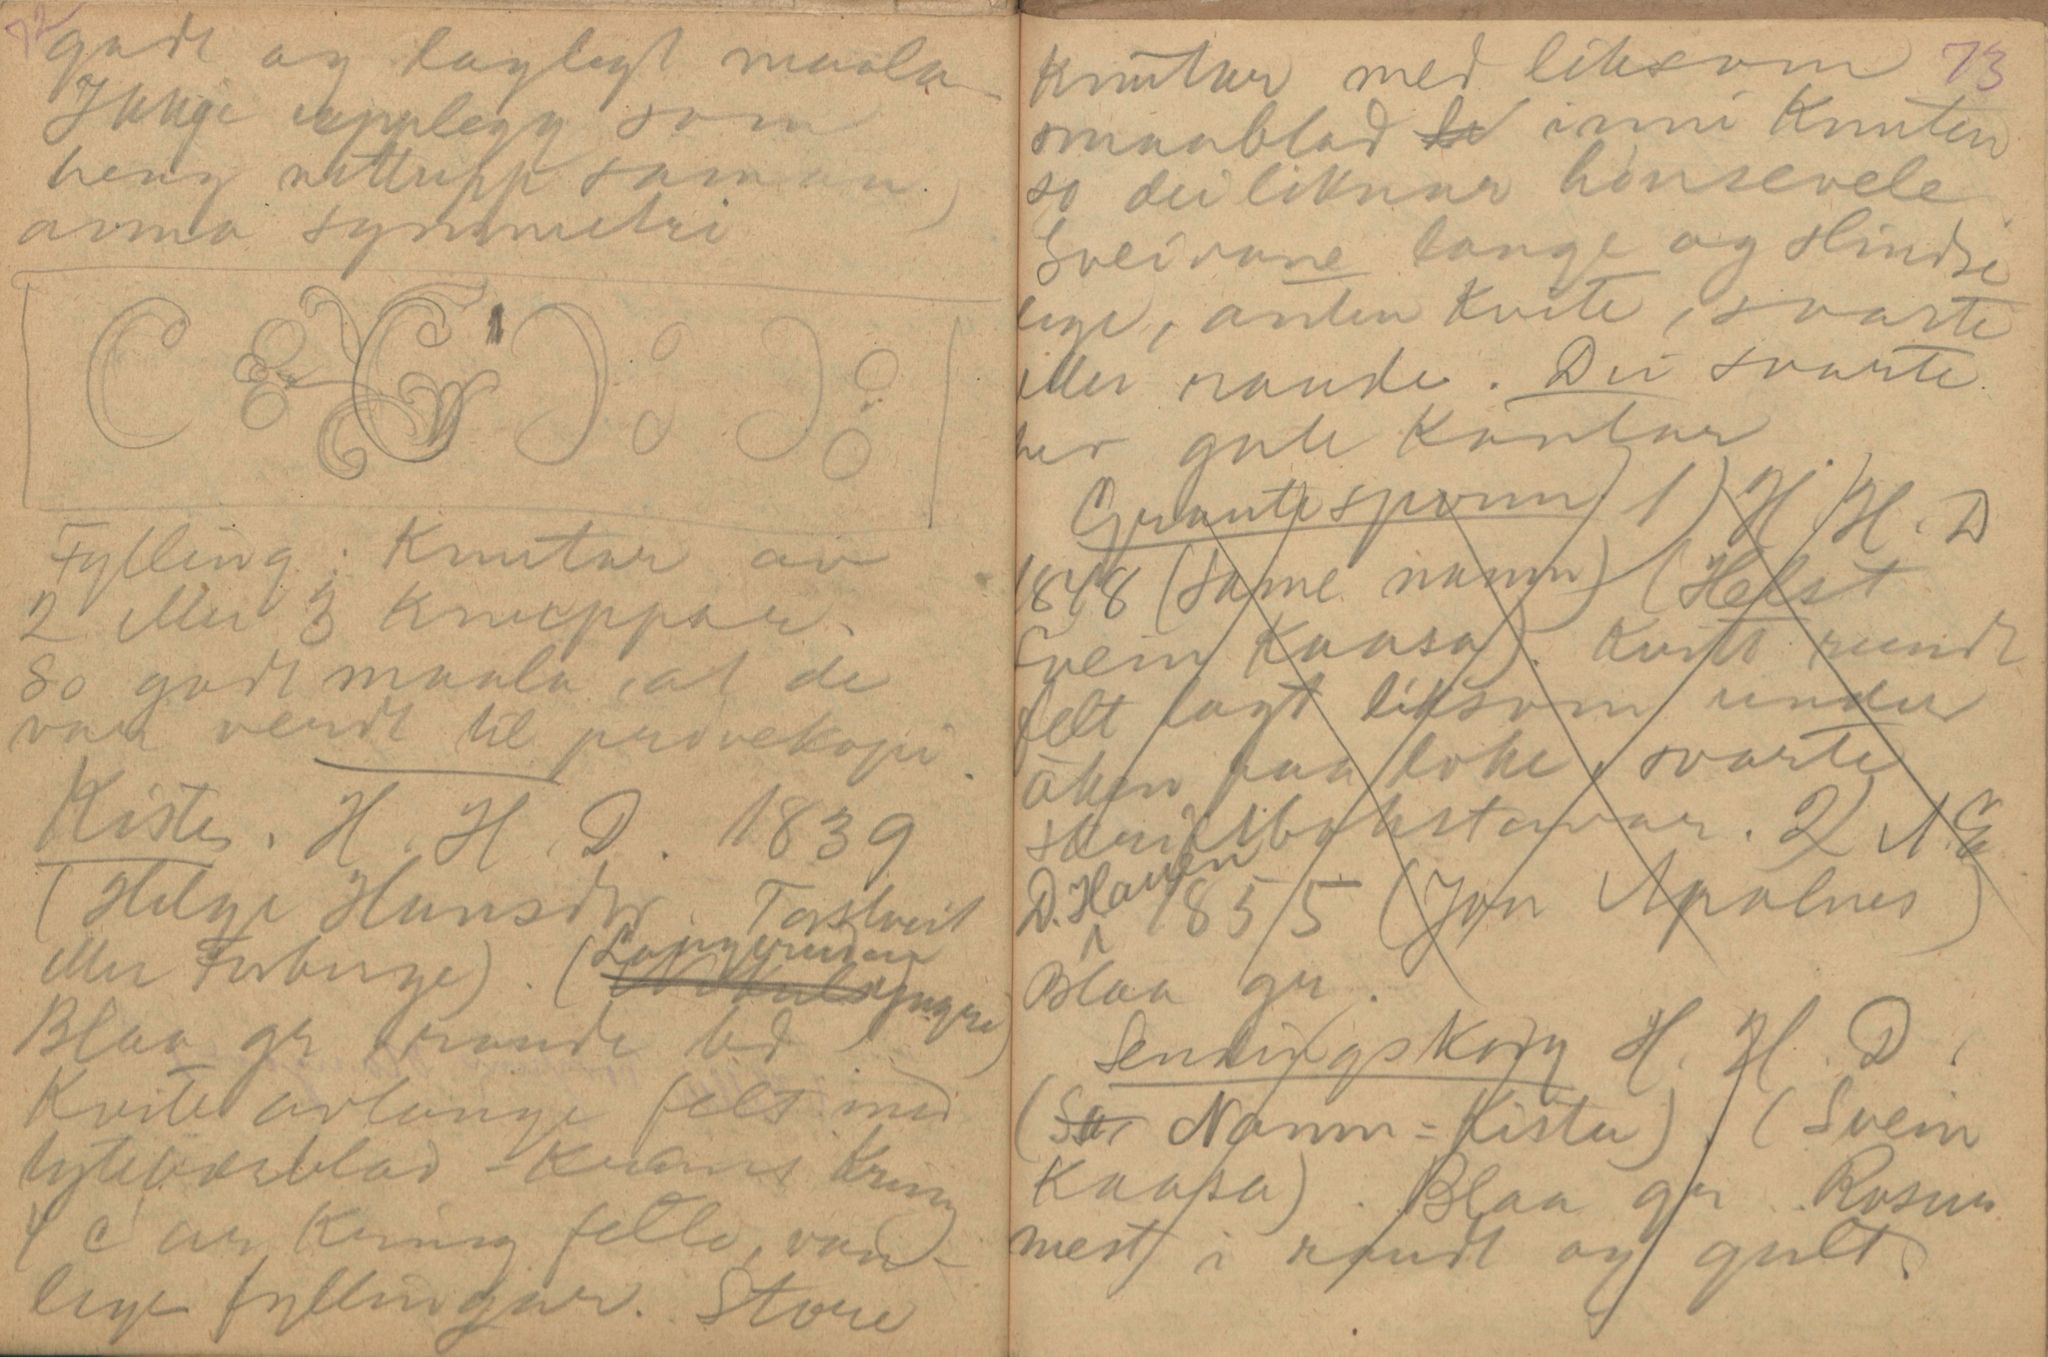 72
godt og laglegt maala
Ikkje upplegg som
heng rettupp saman.
anna symmetri
Fylling: Knutar av
2 eller 3 Knieppar.
So godt maala, at de
var verdt til prøvekopi.
Kiste. H. H. D. 1839
(Helge Hansdtr. Tostveit
eller Forberge). (Langerudar
Blaa gr raude bd
Kvite avlange felt med
tytebærblad - Krans Kring
4 C ar Kring felle, van-
lege fyllingar. Store
73
Knutar med liksom
smaablad inni Knuten
so dei liknar hønsevele
Sveivane lange og stindse
lege, anten Kvite, svarte
eller raude. Dei svarte
her gule Kantar.
Grautespann 1) H. H. D
1848 (same namn) (Helst
Svein Kaasa). Kvitt rundt
felt lagt liksom under
åken paa loke, svarte
skriftbokstavar. 2) N G
D. Hauen 1855 (Jon Apalnes)
Blaa gr.
Sendingskorg H. H. D.
(Namn = Kista). (Svein
Kaasa). Blaa gr. Rosur
mest i raudt og gult.